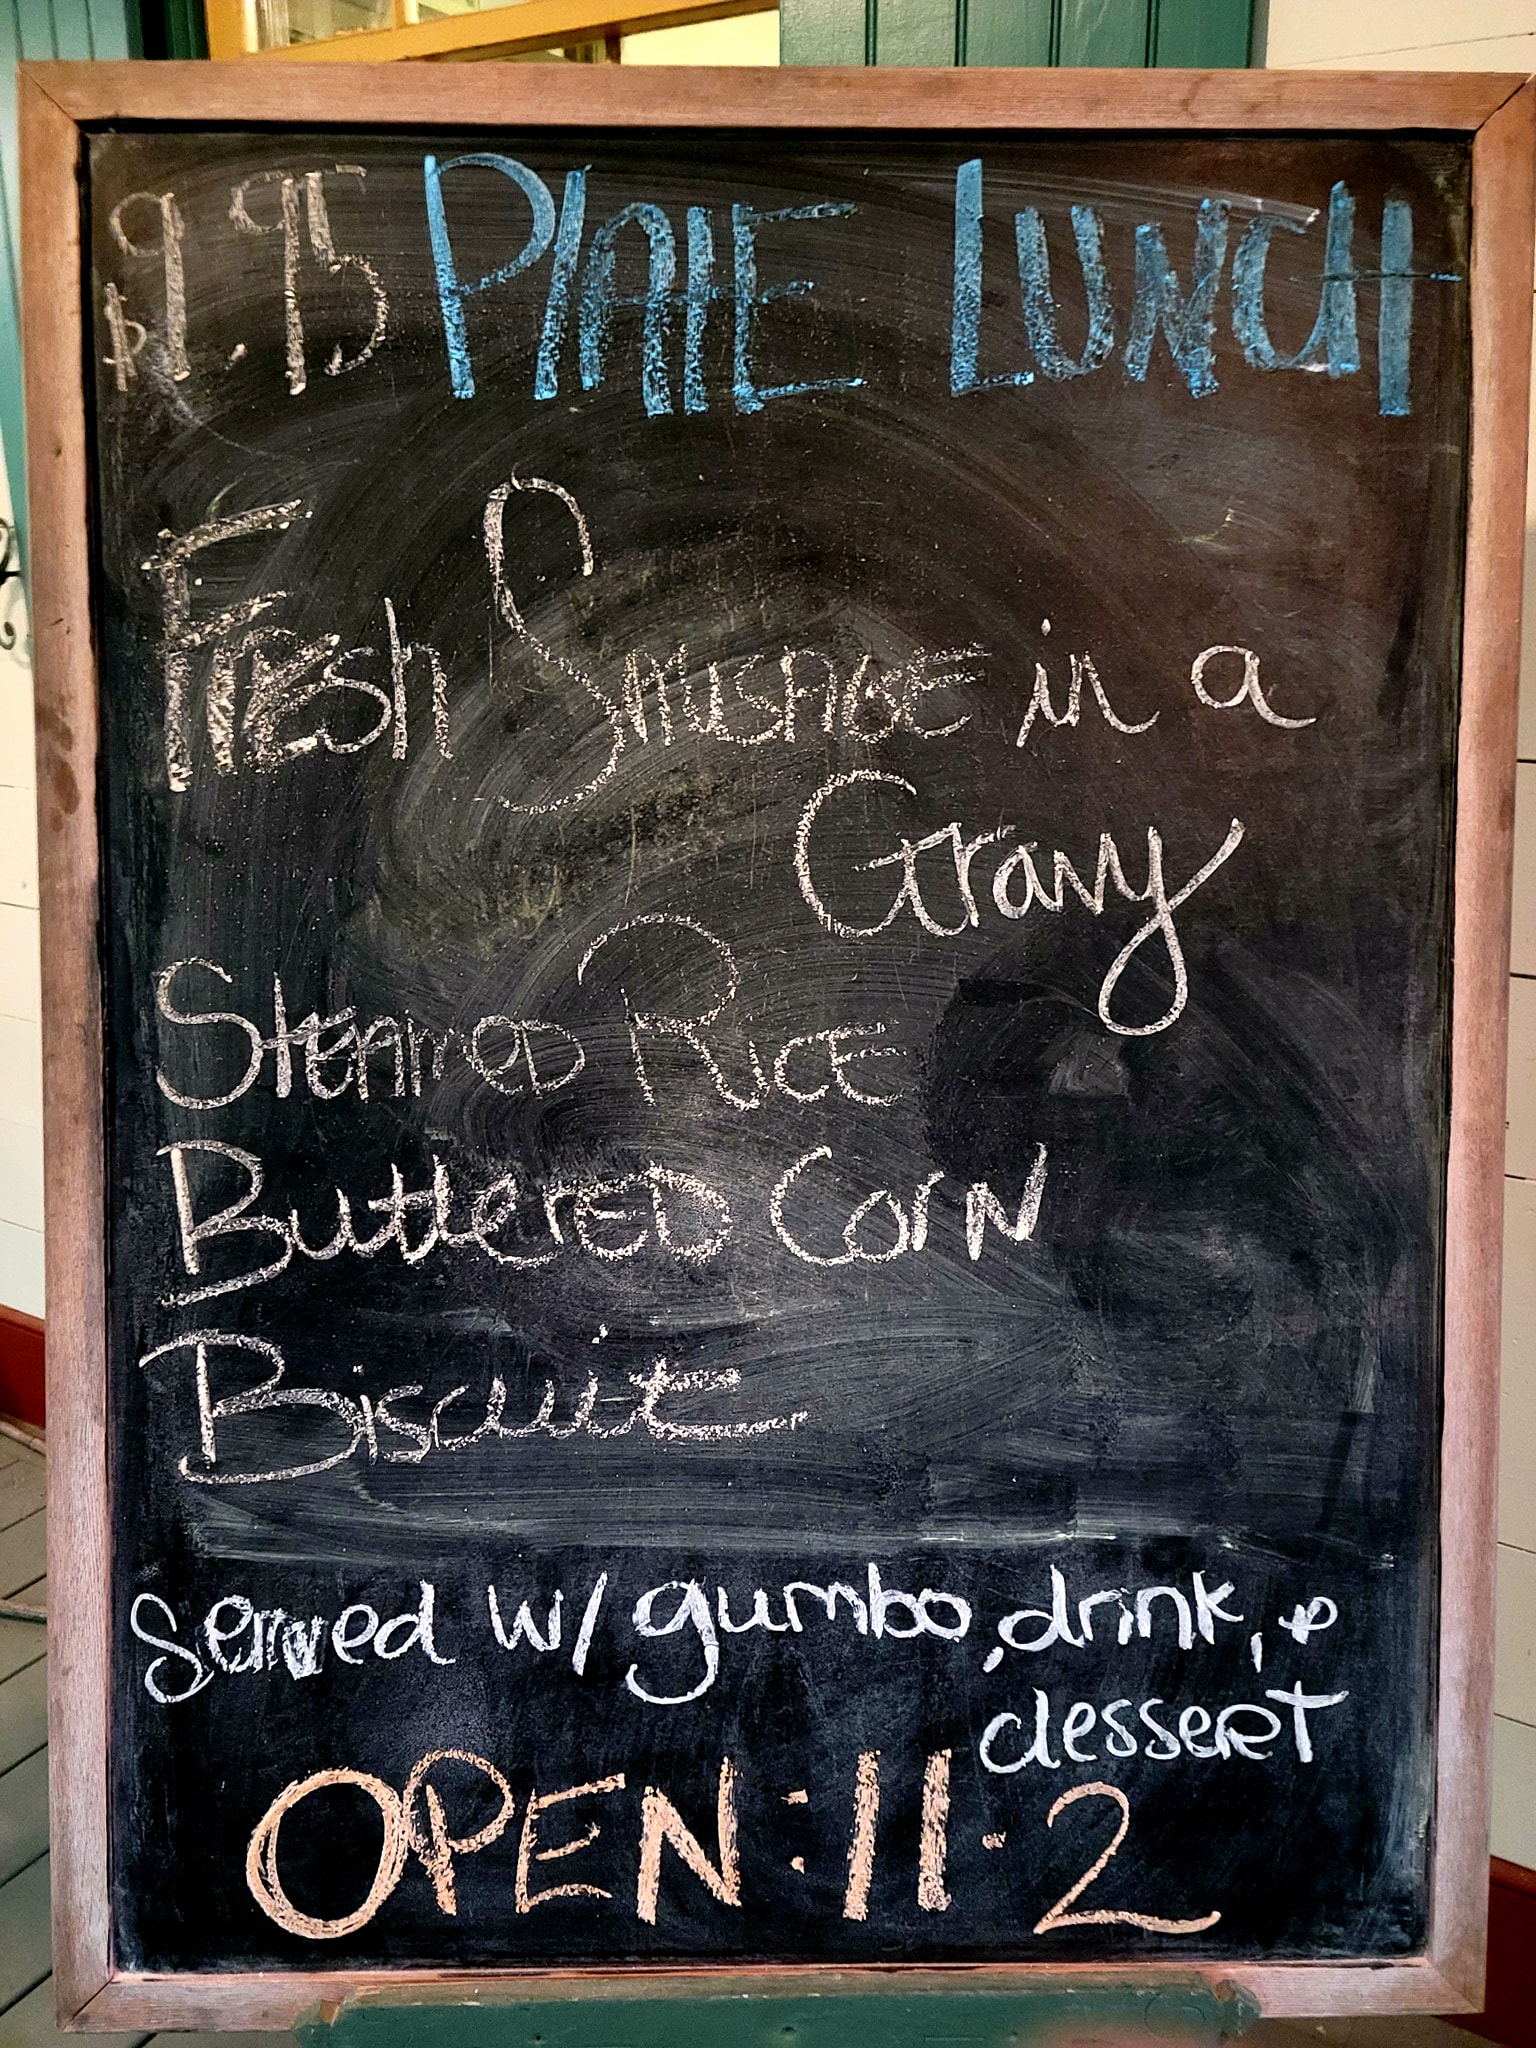 $9.95 PlATE LUNCH
Fresh SAUSAGE in a
Gravy
Steamed Rice
Buttered Corn
Biscuit
Served w/ gumbo, drink, &
dessert
OPEN: 11-2